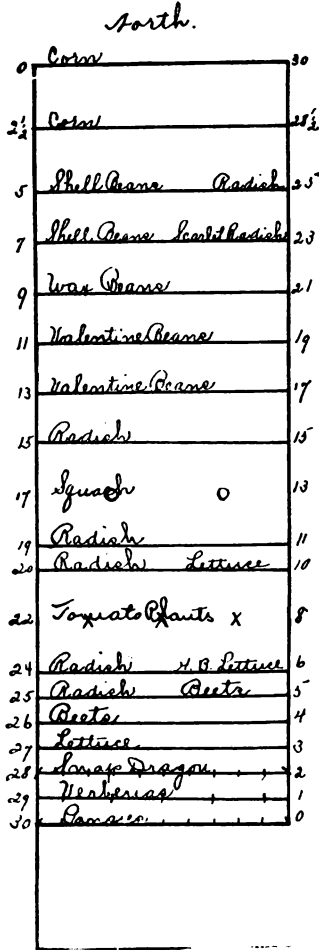 North.
0 Corn 30
2½ Corn 28½
5 Shell Beans Radish 25
7 Shell Beans Scarlet Radish 23
9 Wax Beans 21
11 Valentine Beans 19
13 Valentine Beans 17
15 Radish 15
17 Squash 13
19 Radish 11
20 Radish Lettuce 10
22 Tomato Plants x 8
24 Radish H. B. Lettuce 6
25 Radish Beets 5
26 Beets 4
27 Lettuce 3
28 Snap Dragon 2
29 Verbenas 1
30 0